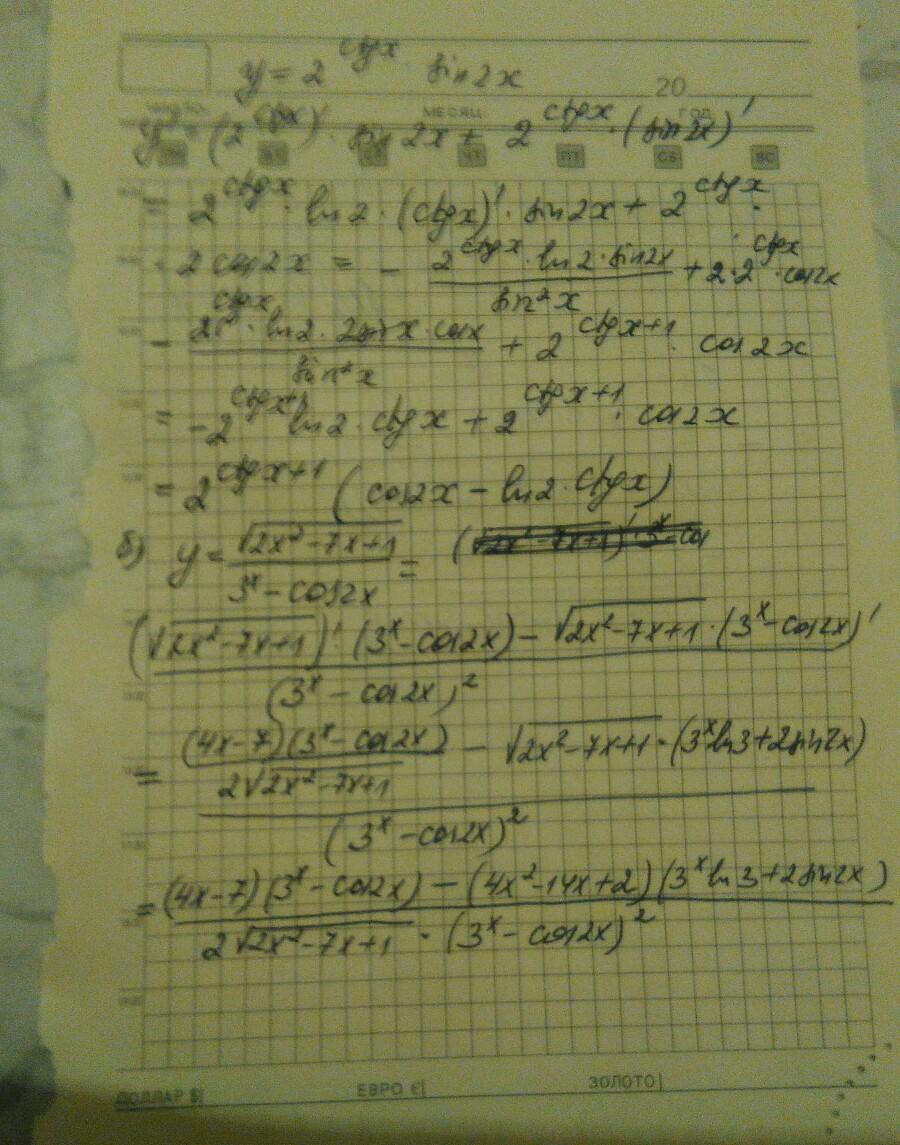 y = 2^ctgx · sin2x
20
ЧИСЛО МЕСЯЦ ГОД
y' = (2^ctgx)' · sin 2x + 2^ctgx · (sin2x)'
ПН ВТ СР ЧТ ПТ СБ ВС
= 2^ctgx · ln2 · (ctgx)' · sin2x + 2^ctgx ·
· 2cos2x = - (2^ctgx · ln2 · sin2x)/(sin²x) + 2·2^ctgx · cos2x
- (2^ctgx · ln2 · 2sinx · cosx)/(sin²x) + 2^ctgx+1 · cos2x
= -2^ctgx+1 ln2 · ctgx + 2^ctgx+1 · cos2x
= 2^ctgx+1 (cos2x - ln2·ctgx)
б) y = √(2x²-7x+1)/(3^x - cos2x) =
((√(2x²-7x+1))' · (3^x - cos2x) - √(2x²-7x+1) · (3^x - cos2x)')/(3^x - cos2x)²
= ((4x-7)(3^x - cos2x)/(2√(2x²-7x+1)) - √(2x²-7x+1) · (3^x ln3 + 2sin2x))/(3^x - cos2x)²
= ((4x-7)(3^x - cos2x) - (4x²-14x+2)(3^x ln3 + 2sin2x))/(2√(2x²-7x+1) · (3^x - cos2x)²)
ДОЛЛАР $| ЕВРО €| ЗОЛОТО|